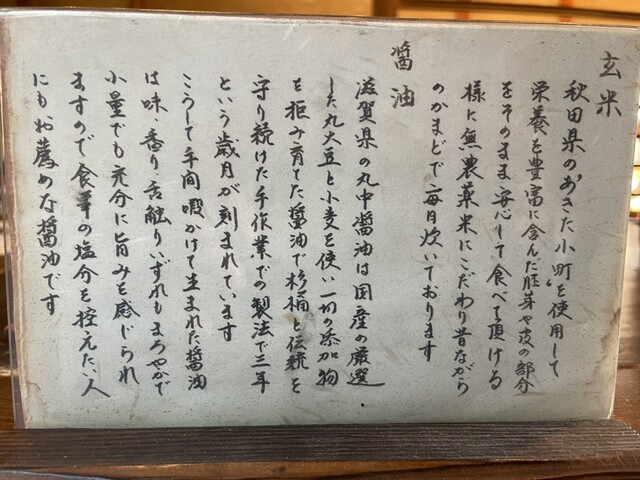 玄米
秋田県の〝あきた小町〟を使用して
栄養を豊富に含んだ胚芽や皮の部分
をそのまま安心して食べて頂ける
様に無農薬米にこだわり昔ながら
のかまどで毎日炊いております
醤油
滋賀県の丸中醤油は国産の厳選
した丸大豆と小麦を使い一切の添加物
を拒み育てた醤油で杉桶と伝統を
守り続けた手作業での製法で三年
という歳月が刻まれています
こうして手間暇かけて生まれた醤油
は味、香り、舌触りいずれもまろやかで
小量でも充分に旨みを感じられ
ますので食事の塩分を控えたい人
にもお薦めな醤油です